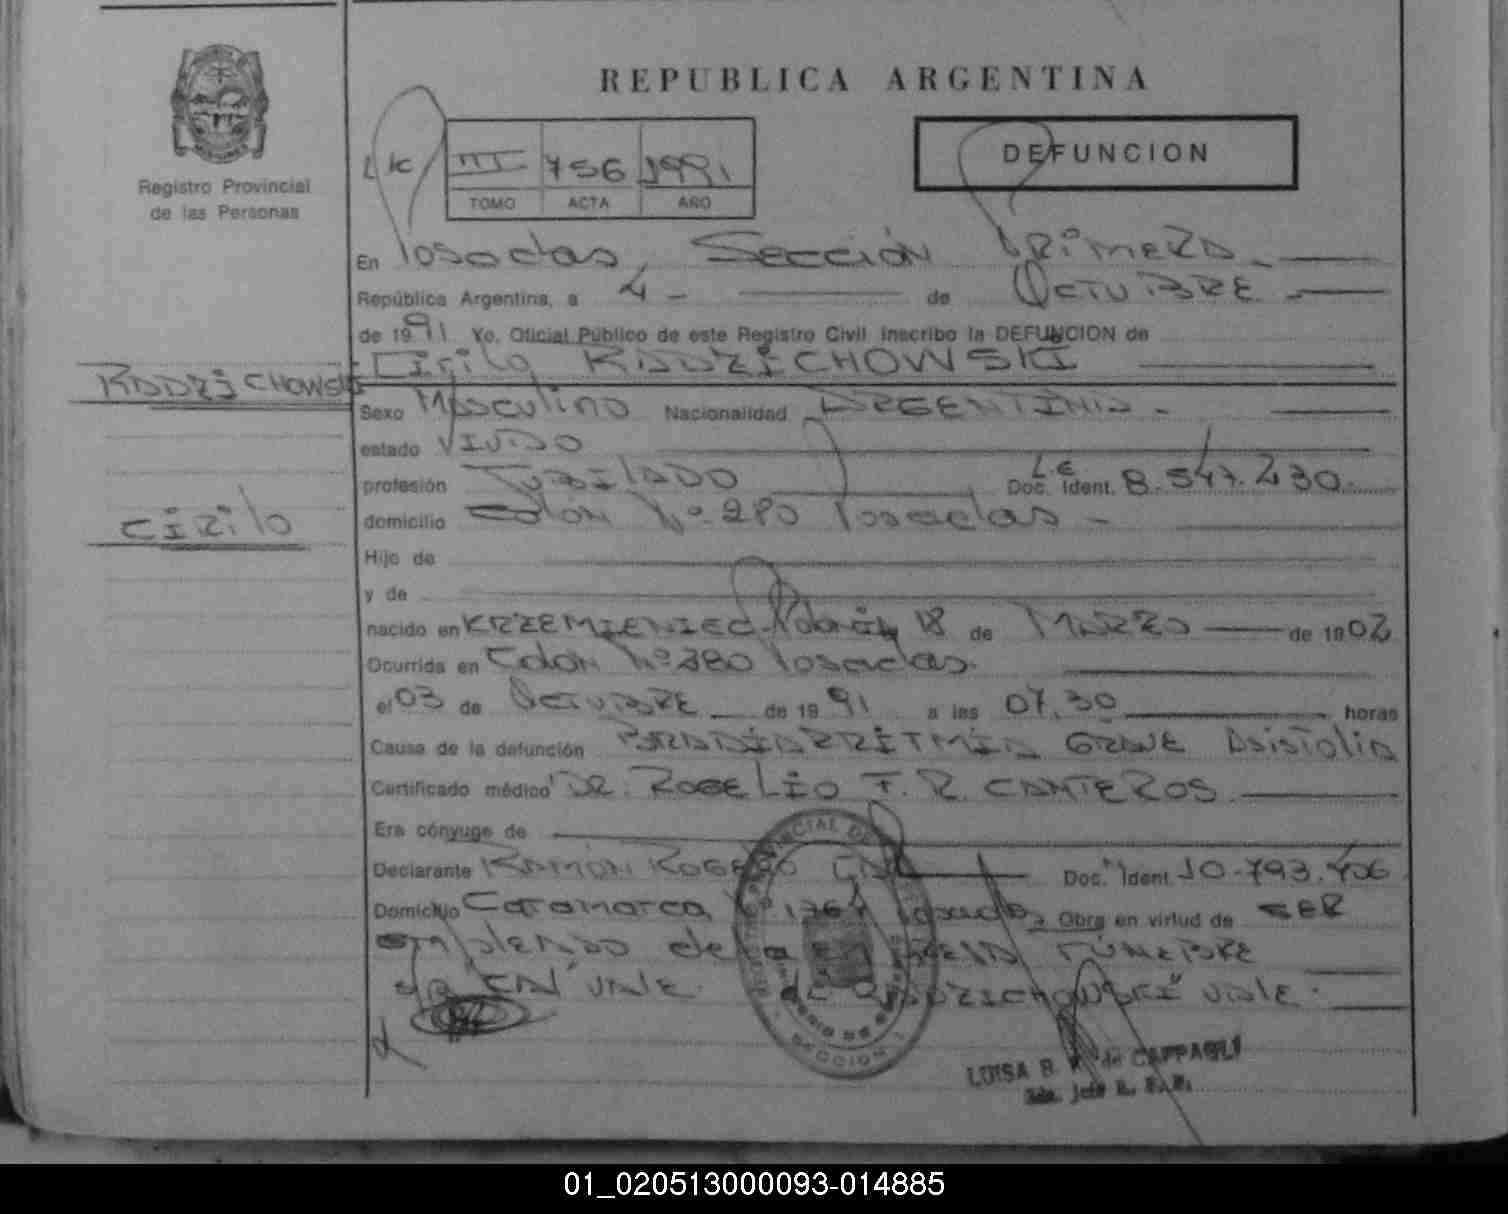 REPUBLICA ARGENTINA
DEFUNCION
III 756 1991
TOMO ACTA AÑO
Registro Provincial
de las Personas
En Posadas, Sección Primera
República Argentina, a 4 - de OCTUBRE
de 1991. Yo, Oficial Público de este Registro Civil inscribo la DEFUNCION de
Cirilo RADZICHOWSKI
RADZICHOWSKI
Sexo Masculino Nacionalidad ARGENTINA -
estado VIUDO
profesión JUBILADO L.E Doc. Ident. 8.547.230.
CIRILO
domicilio Colón Nº 280 Posadas -
Hijo de
y de
nacido en KRZEMIENIEC Polonia 18 de MARZO de 1902
Ocurrida en Colón Nº 380 Posadas.
el 03 de OCTUBRE de 1991 a las 07.30 horas
Causa de la defunción BRADIARRITMIA GRAVE Asistolia
Certificado médico DR. ROGELIO F. R. CANTEROS.
Era cónyuge de
Declarante RAMÓN ROGELIO Doc. Ident. 10.793.406
Domicilio Catamarca Nº Posadas Obra en virtud de SER
empleado de la EMPRESA FÚNEBRE
VALE. RADZICHOWSKI" VALE.
SECCION 1
LUISA B. de CAPPAGLI
2da. Jefe
01_020513000093-014885